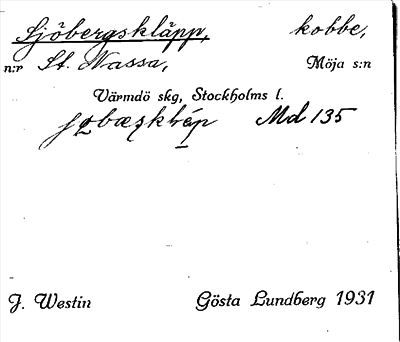 Sjöbergskläpp, kobbe,
n:r St. Nassa, Möja s:n
Värmdö skg, Stockholms l.
Md 135
J. Westin Gösta Lundberg 1931